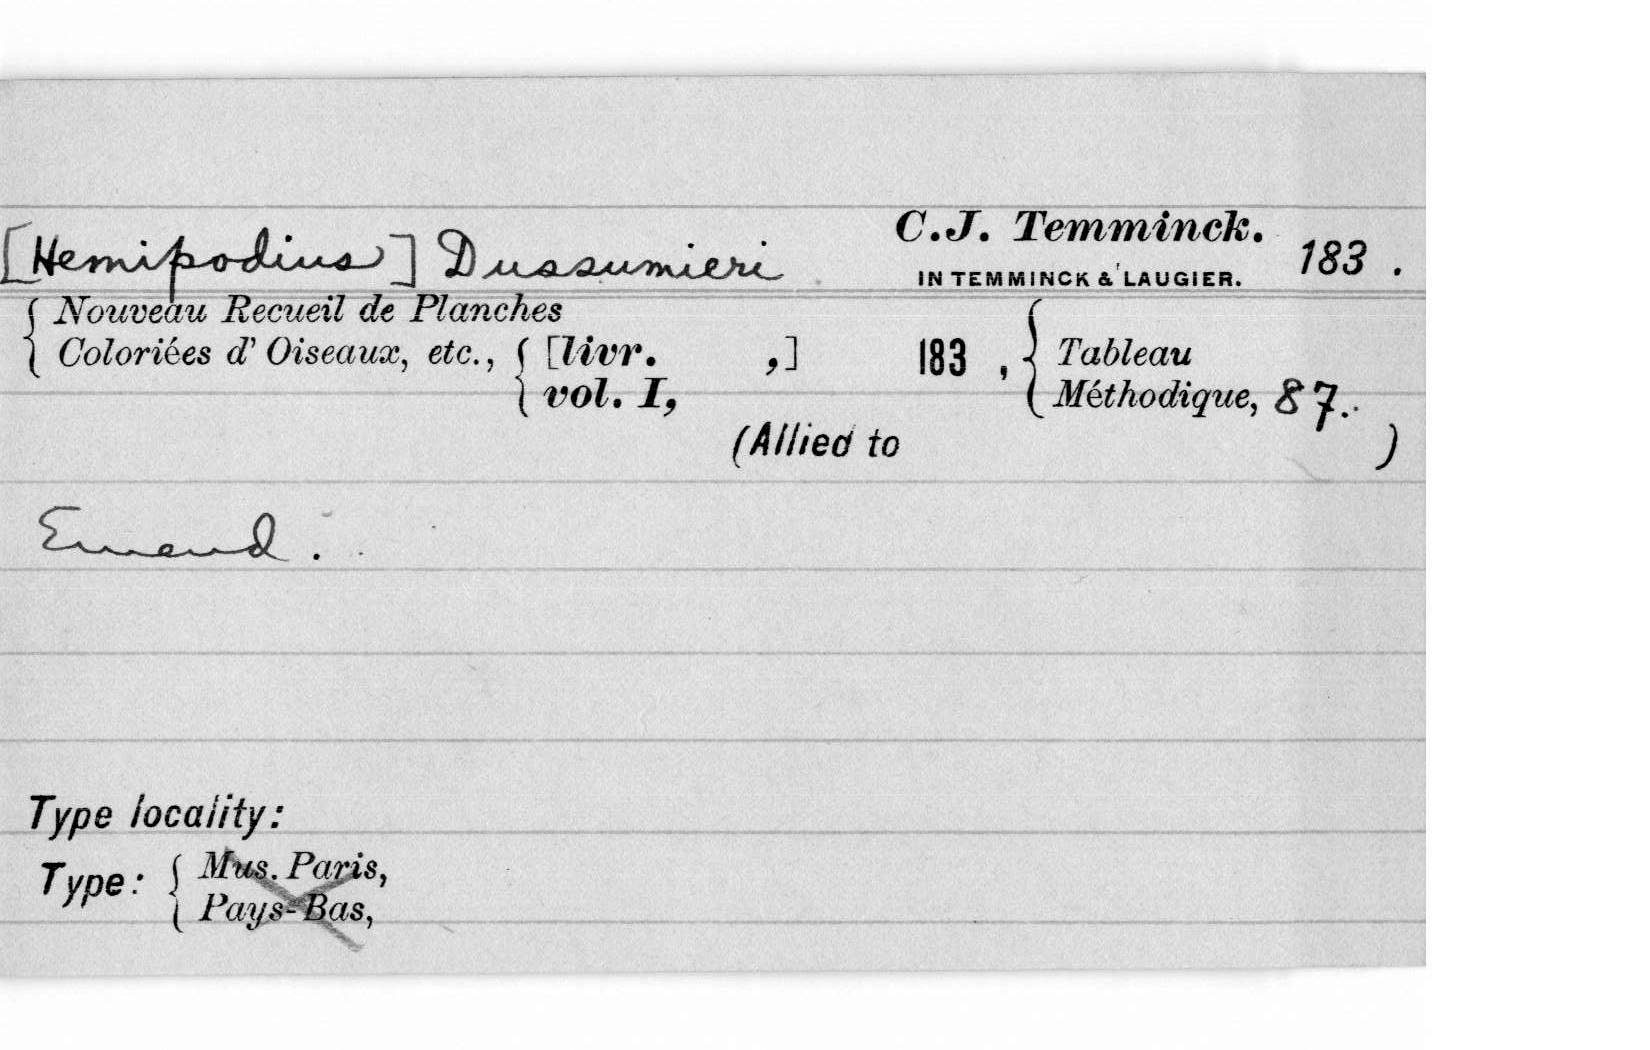 [Hemipodius] Dussumieri C.J. Temminck. 183 .
IN TEMMINCK & LAUGIER.
{ Nouveau Recueil de Planches
Coloriées d' Oiseaux, etc., { [livr. ,] 183 , { Tableau
vol. I, Méthodique, 87.
(Allied to )
Emend.
Type locality:
Type: { Mus. Paris,
Pays-Bas,